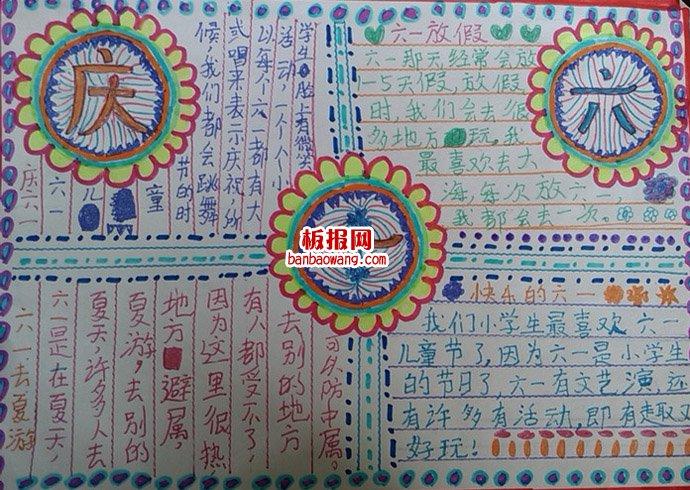 庆
庆六一
六一
儿
童
节的时
候，我们都会跳舞
或唱来表示庆祝，所
以每个六一都有大
活动，一个个小
学生脸上有微笑
六
六一放假
六一那天经常会放
5天假，放假
时，我们会去很
多地方玩，我
最喜欢去大
海，每次放六一，
我都会去一次。
一
板报网
banbaowang.com
六一去夏游
六一是在夏天，
夏天，许多人去
夏游，去别的
地方避属，
因为这里很热
有人都受不了，
去别的地方
可以防中属。
快乐的六一
我们小学生最喜欢六一
儿童节了，因为六一是小学生
的节日了，六一有文艺演，还
有许多有活动，即有趣又
好玩！